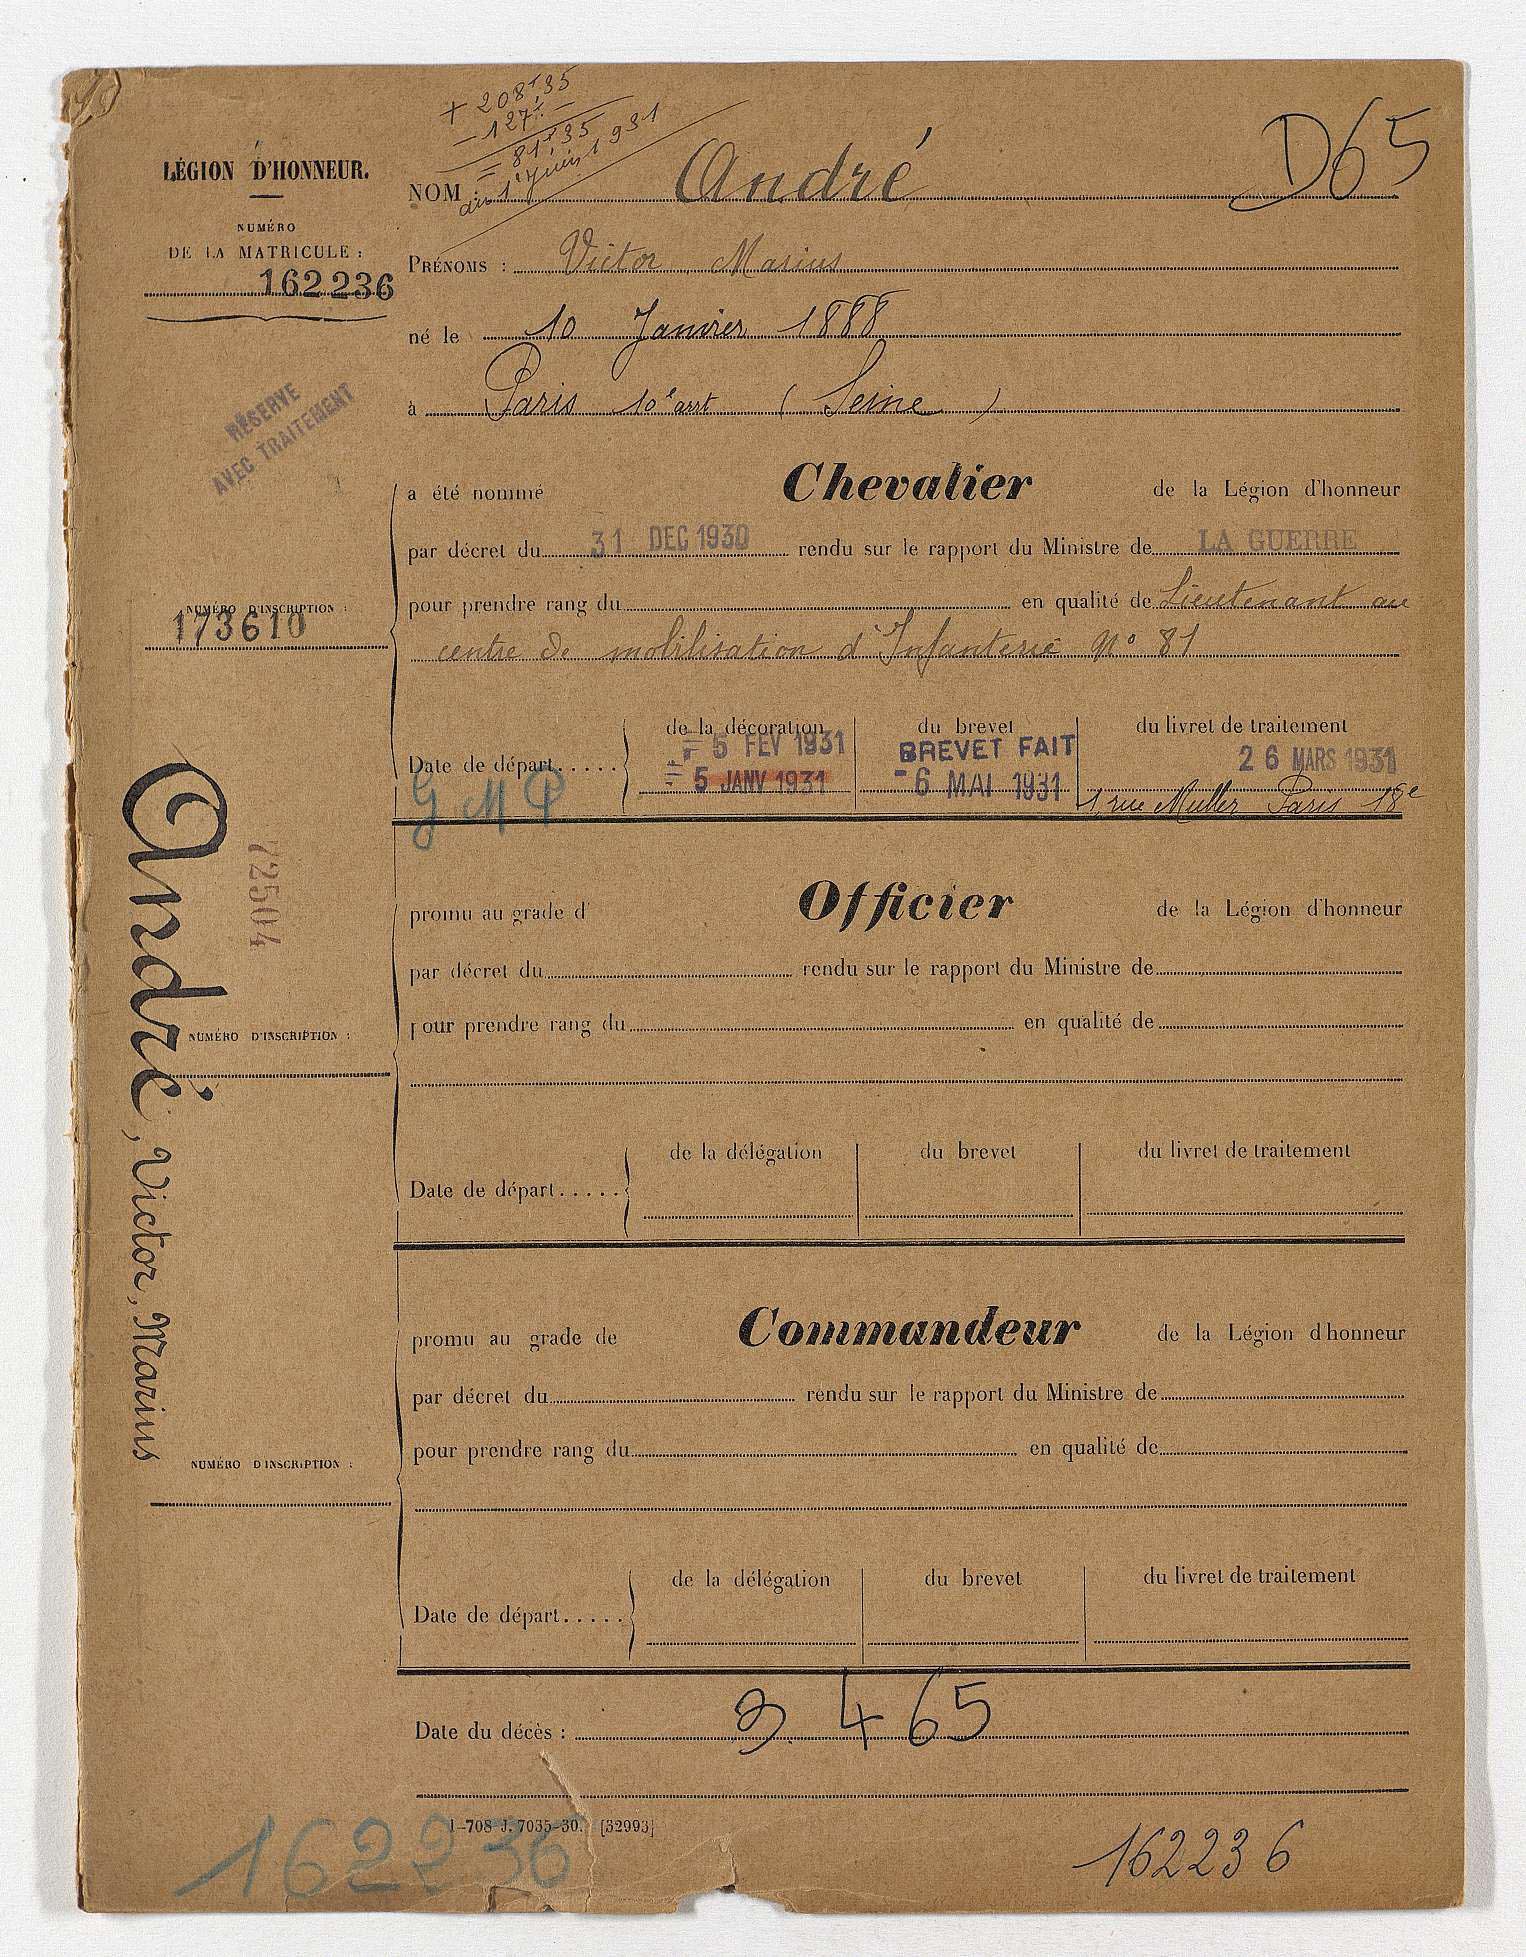 + 208f35
- 127f
= 81f35
du 1er Juin 1931
D65
LÉGION D'HONNEUR.
NUMÉRO
DE LA MATRICULE :
162236
NOM André
PRÉNOMS : Victor Marius
né le 10 Janvier 1888
à Paris 10e arrt (Seine)
RÉSERVE
AVEC TRAITEMENT
a été nommé Chevalier de la Légion d'honneur
par décret du 31 DEC 1930 rendu sur le rapport du Ministre de LA GUERRE
pour prendre rang du en qualité de Lieutenant au
centre de mobilisation d'Infanterie No 81
NUMÉRO D'INSCRIPTION :
173610
de la décoration du brevet du livret de traitement
5 FEV 1931 BREVET FAIT 26 MARS 1931
Date de départ..... 5 JANV 1931 -6 MAI 1931
G M P
1, rue Muller Paris 18e
72504
André, Victor, Marius
promu au grade d' Officier de la Légion d'honneur
par décret du rendu sur le rapport du Ministre de
pour prendre rang du en qualité de
NUMÉRO D'INSCRIPTION :
de la délégation du brevet du livret de traitement
Date de départ.....
promu au grade de Commandeur de la Légion d'honneur
par décret du rendu sur le rapport du Ministre de
pour prendre rang du en qualité de
NUMÉRO D'INSCRIPTION :
de la délégation du brevet du livret de traitement
Date de départ.....
Date du décès : 3. 4 65
1-708 J. 7035-30. [32993]
162236
162236